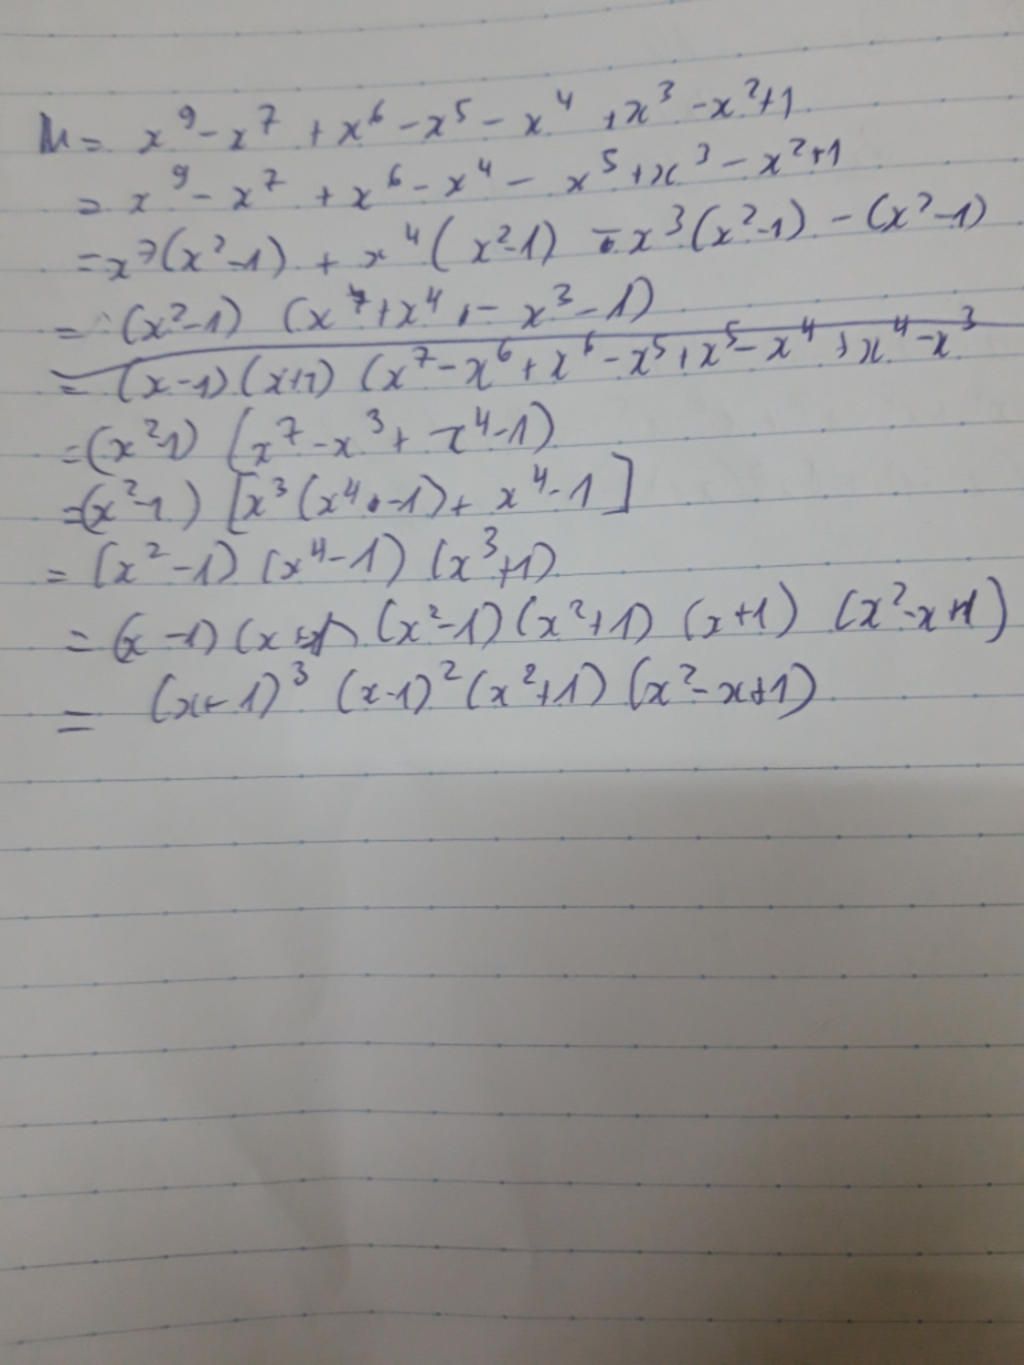 M = x⁹ - x⁷ + x⁶ - x⁵ - x⁴ + x³ - x² + 1
= x⁹ - x⁷ + x⁶ - x⁴ - x⁵ + x³ - x² + 1
= x⁷(x² - 1) + x⁴(x² - 1) - x³(x² - 1) - (x² - 1)
= (x² - 1) (x⁷ + x⁴ - x³ - 1)
= (x - 1) (x + 1) (x⁷ - x⁶ + x⁶ - x⁵ + x⁵ - x⁴ + x⁴ - x³
= (x² - 1) (x⁷ - x³ + x⁴ - 1)
= (x² - 1) [x³(x⁴ - 1) + x⁴ - 1]
= (x² - 1) (x⁴ - 1) (x³ + 1)
= (x - 1) (x + 1) (x² - 1) (x² + 1) (x + 1) (x² - x + 1)
= (x + 1)³ (x - 1)² (x² + 1) (x² - x + 1)